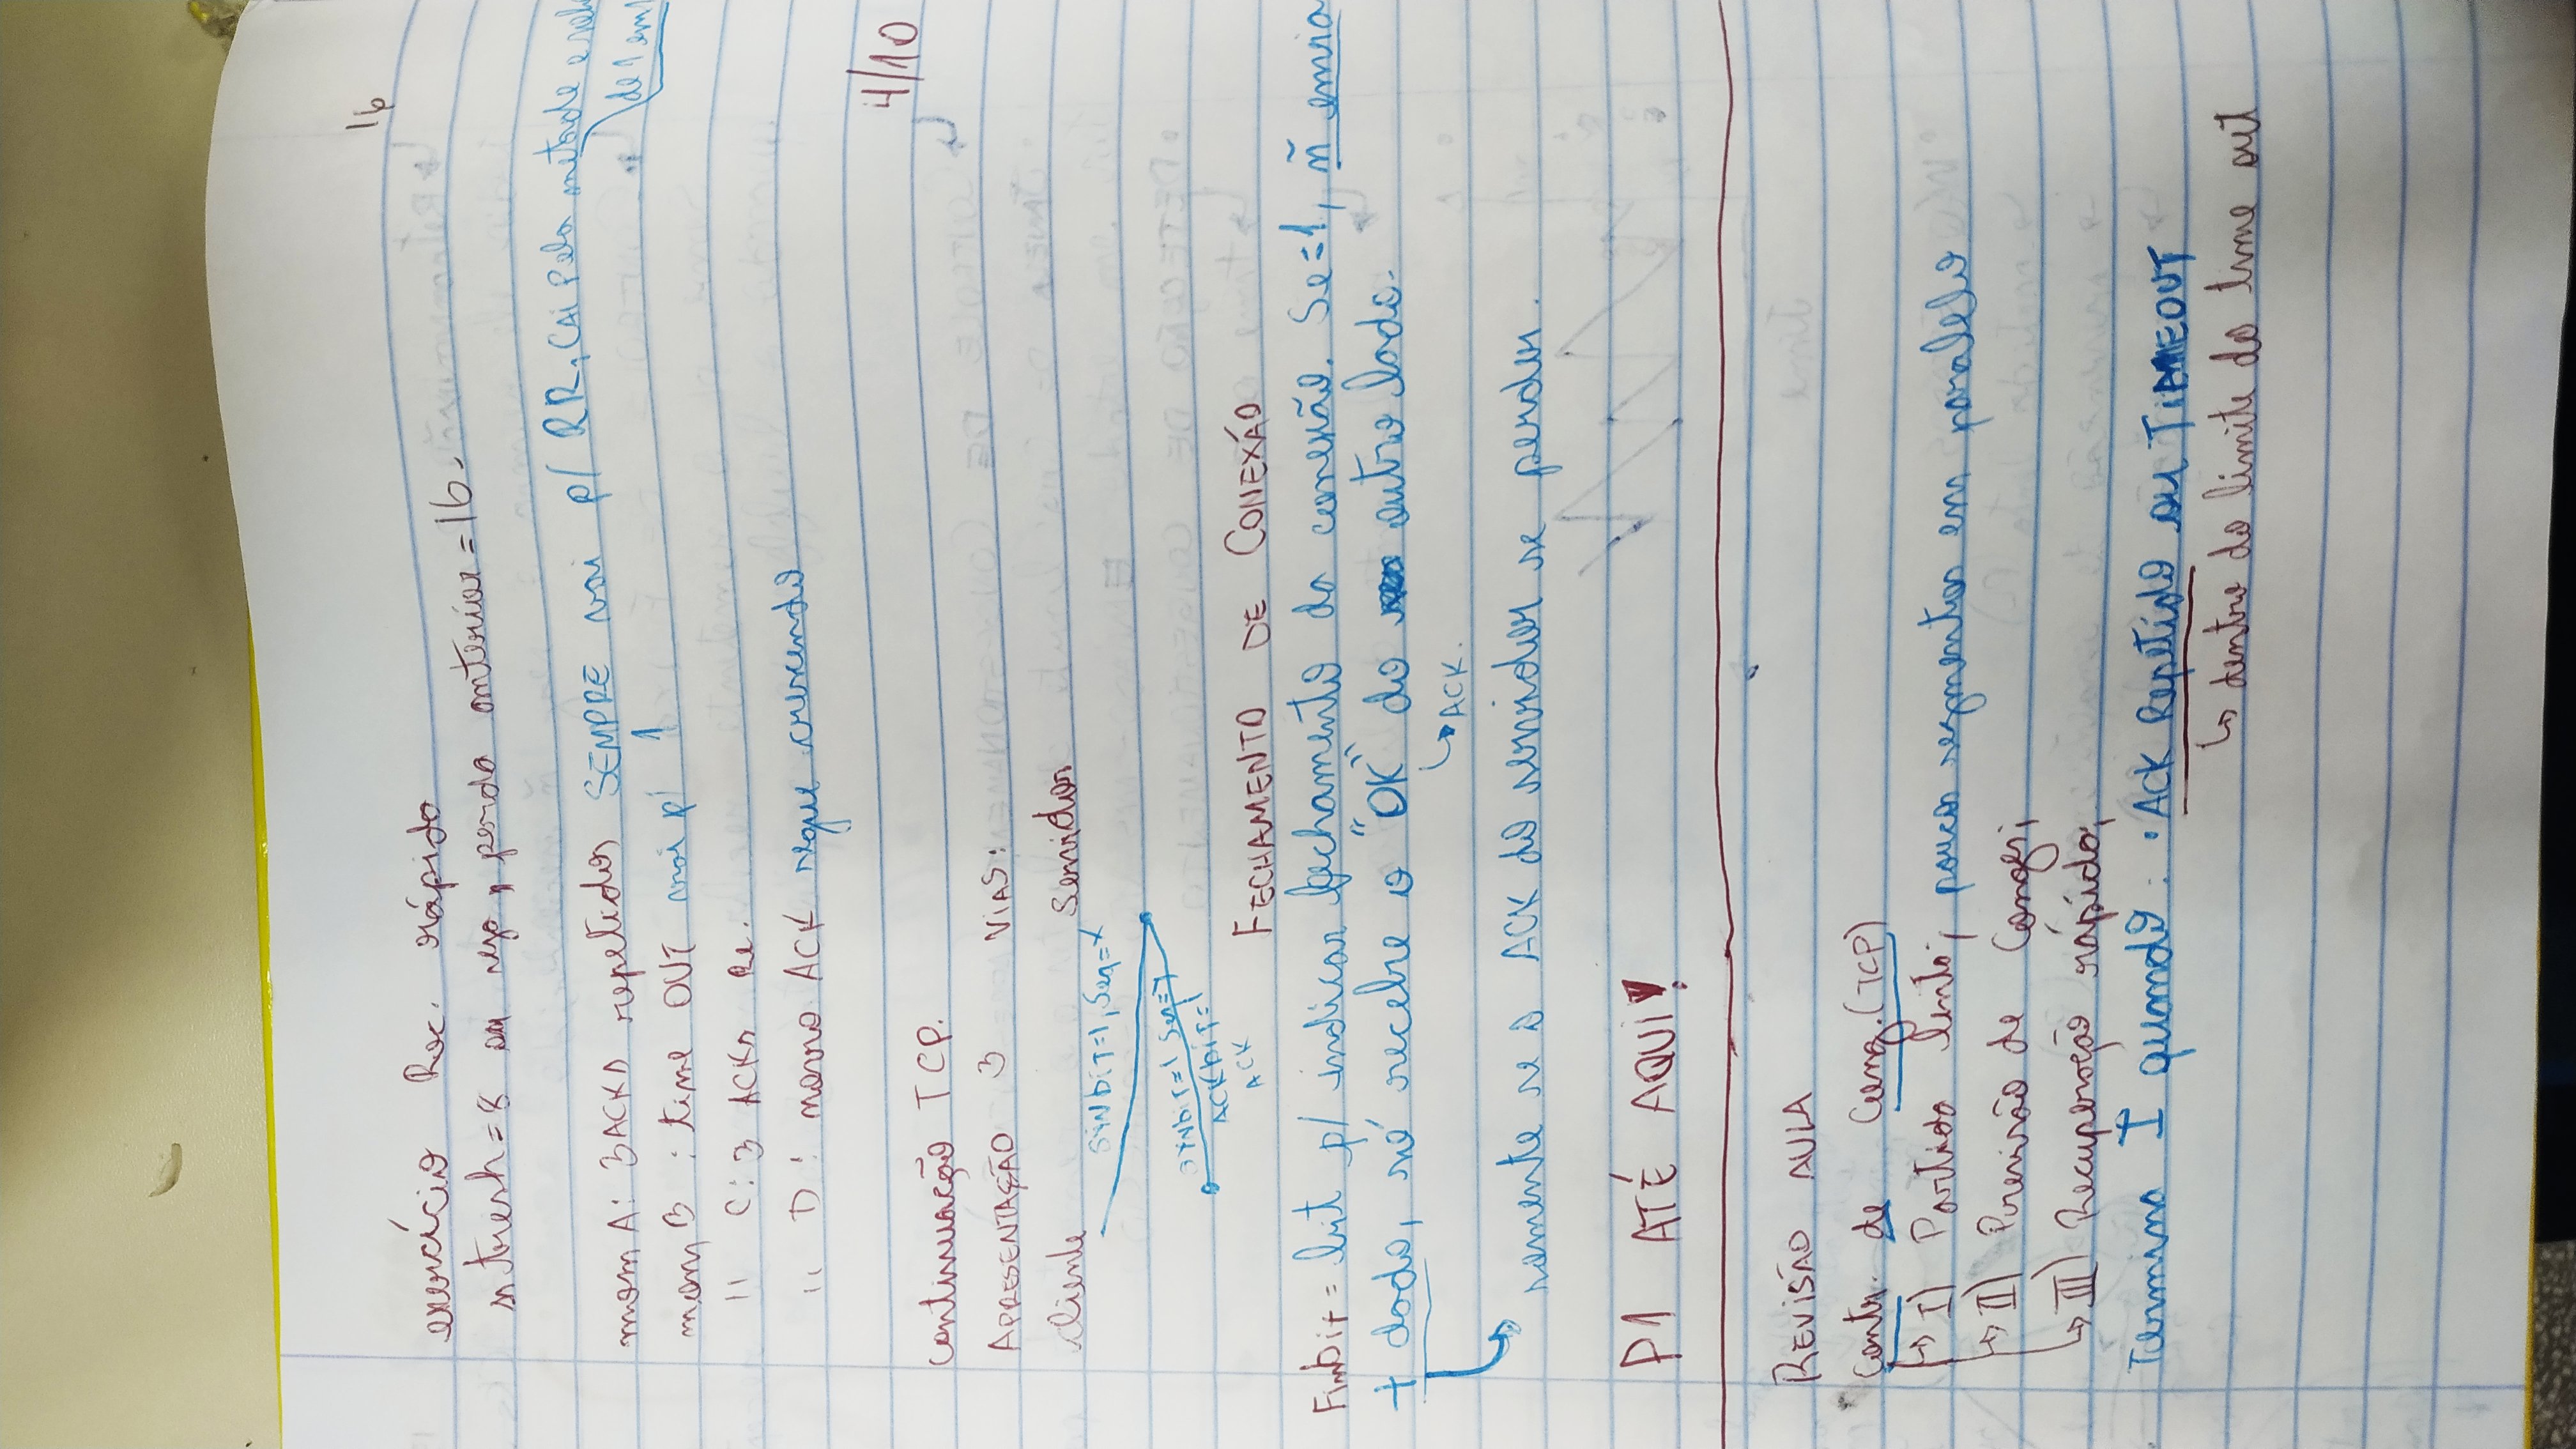 16
exercício Rec. rápido
sstresh=8 ou seja, perda anterior=16.
mom A: 3ACKs repetidos SEMPRE vai p/ RR, CAi Pela metade e
de 1 em
mom B : time OUT vai p/ 1
11 C: 3 ACKs Re.
11 D: novo ACK segue crescendo
4/10
continuação TCP.
APRESENTAÇÃO 3 ViAS:
cliente servidor
SYNbiT=1, Seq=x
SYNbiT=1 Seq=y
ACKbiT=1
ACK
FECHAMENTO DE CONEXÃO
Finbit = bit p/ indicar fechamento da conexão. Se=1, ñ envia
+ dado, só recebe o "OK" do outro lado.
↳ ACK.
↳ somente se o ACK do servidor se perder.
P1 ATÉ AQUI!
REVISÃO AULA
Contr. de Cong.(TCP)
↳ I) Partida lenta; poucos segmentos em paralelo
↳ II) Prevenção de Conges;
↳ III) Recuperação rápida;
Termina I quando: • ACK Repetido ou TIMEOUT
↳ dentro do limite do time out